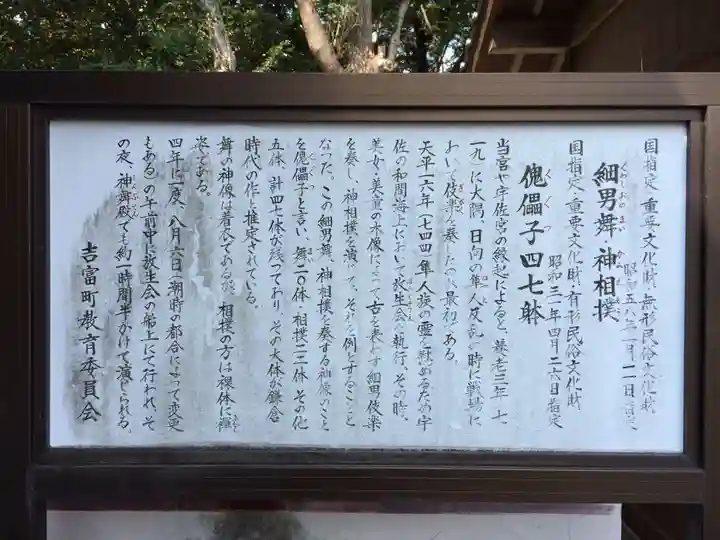 国指定 重要文化財・無形民俗文化財
昭和五八年一月一一日指定
細男舞・神相撲
くわしおのまい かみずもう
国指定 重要文化財・有形民俗文化財
昭和三一年四月二六日指定
傀儡子四七躰
くぐつ
当宮や宇佐宮の縁起によると、養老三年(七
一九)に大隅、日向の隼人反乱の時に戦場に
おいて伎楽を奏したのが最初である。
天平一六年(七四四)隼人族の霊を慰めるため宇
佐の和間海上において放生会を執行、その時、
美女・美童の木像によって古を表わす細男伎楽
を奏し、神相撲を演じて、それを例とすること
なった。この細男舞、神相撲を奏する神像のこと
を傀儡子と言い、舞二〇体、相撲二二体、その他
五体、計四七体が残っており、その大体が鎌倉
時代の作と推定されている。
舞の神像は着衣であるが、相撲の方は裸体に褌
姿である。
四年に一度、八月六日(潮時の都合によって変更
もある)の午前中に放生会の船上にて行われ、そ
の夜、神舞殿でも約一時間半かけて演じられる。
吉富町教育委員会